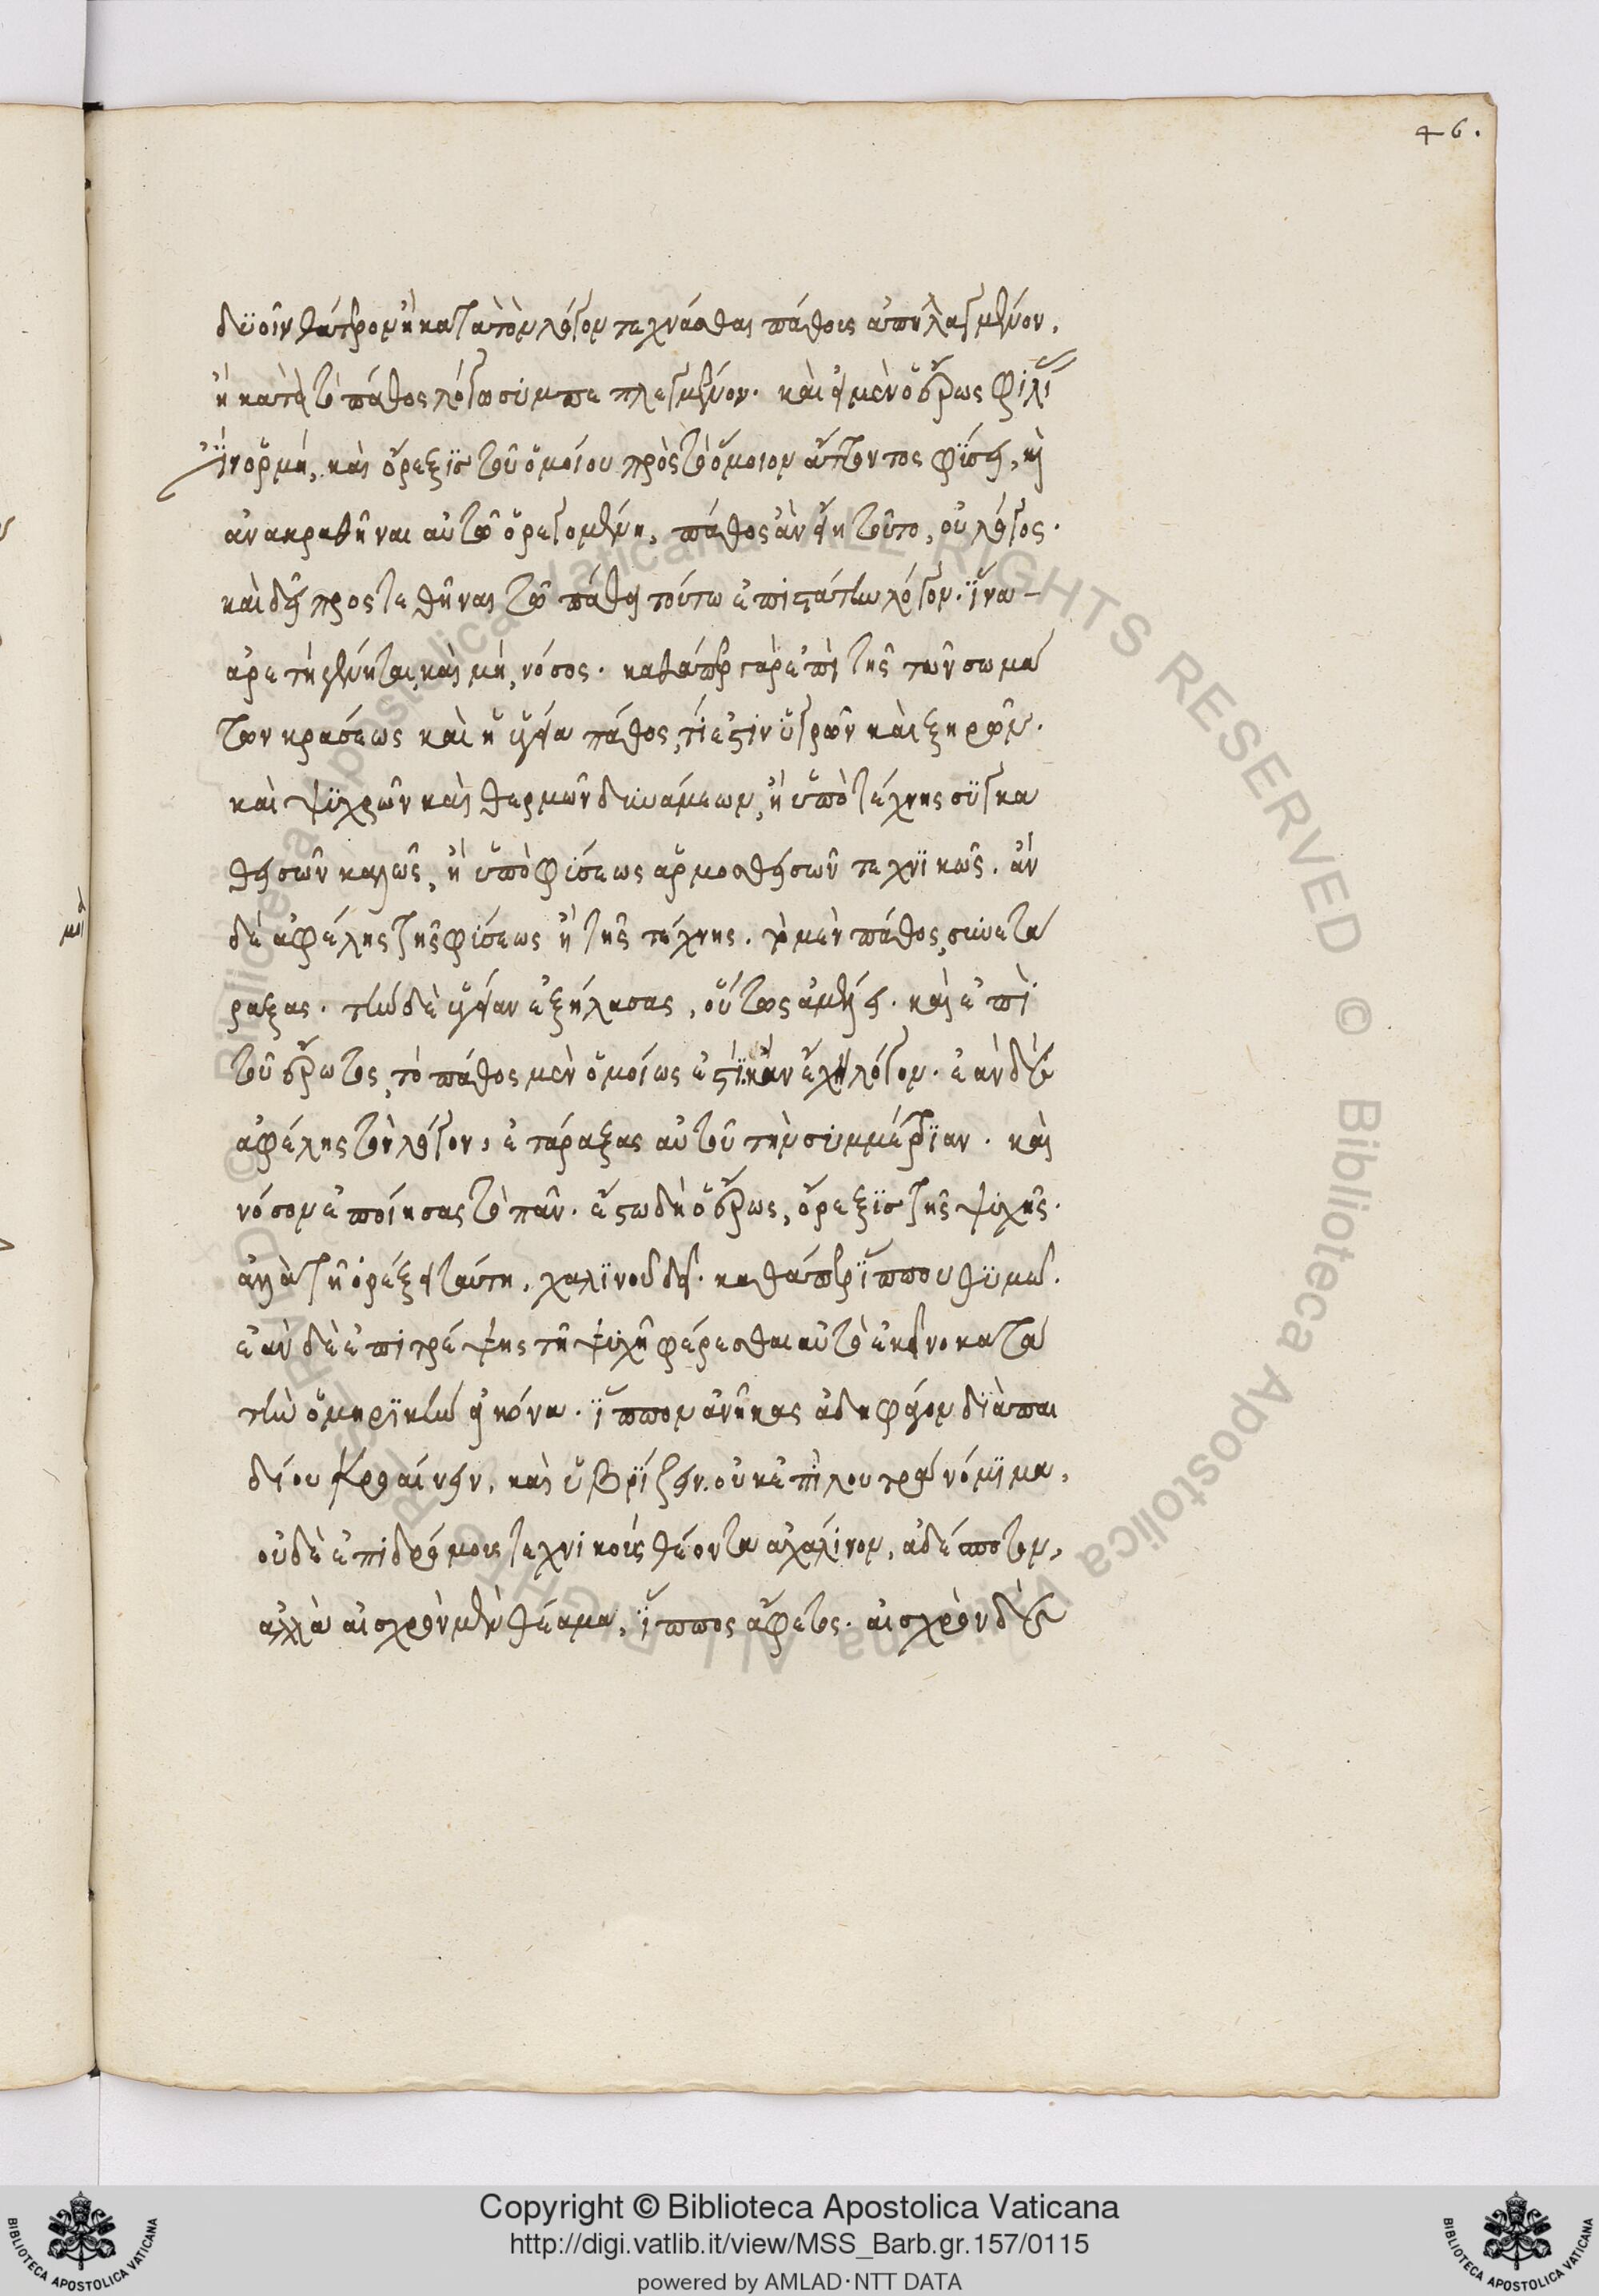 46.
δυοῖν θάτερον ἢ κατὰ τὸν λόγον τετάχθαι πάθους ἀπηλλαγμένον,
ἢ κατὰ τὸ πάθος λόγῳ συμπεπλεγμένον. καὶ εἰ μὲν ὁ ἔρως φιλί
ας ἦν ὁρμή, καὶ ὄρεξις τοῦ ὁμοίου πρὸς τὸ ὅμοιον ἄττοντος φύσει, καὶ
ἀνακραθῆναι αὐτῷ ὀρεγομένη, πάθος ἂν εἴη τοῦτο, οὐ λόγος.
καὶ δεῖ προστεθῆναι τῷ πάθει τούτῳ ἐπιστάτην λόγον. ἵνα
ἀρετὴ γένηται, καὶ μὴ νόσος. καθάπερ γὰρ ἐπὶ τῆς τῶν σωμα
των κράσεως καὶ ἡ ὑγεία πάθος τί ἐστιν ὑγρῶν καὶ ξηρῶν.
καὶ ψυχρῶν καὶ θερμῶν δυνάμεων, ἢ ὑπὸ τέχνης συγκρα
θεισῶν καλῶς, ἢ ὑπὸ φύσεως ἁρμοσθεισῶν τεχνικῶς. ἂν
δὲ ἀφέλῃς τῆς φύσεως ἢ τῆς τέχνης. τὸ μὲν πάθος συνετά
ραξας. τὴν δὲ ὑγείαν ἐξήλασας, οὕτως ἀμέλει. καὶ ἐπὶ
τοῦ ἔρωτος, τὸ πάθος μὲν ὁμοίως ἐστὶ κἂν ἔχῃ λόγον. ἐὰν δὲ
ἀφέλῃς τὸν λόγον, ἐτάραξας αὐτοῦ τὴν συμμετρίαν. καὶ
νόσον ἐποίησας τὸ πᾶν. ἔστω δὴ ὁ ἔρως, ὄρεξις τῆς ψυχῆς.
ἀλλὰ τῇ ὀρέξει ταύτῃ, χαλινοῦ δεῖ. καθάπερ ἵππου θυμῷ.
ἐὰν δὲ ἐπιτρέψῃς τῇ ψυχῇ φέρεσθαι αὐτὸ ἐκεῖνο κατὰ
τὴν ὁμηρικὴν εἰκόνα. ἵππον ἀνῆκας ἀδηφάγον διὰ πε
δίου κροαίνειν, καὶ ὑβρίζειν. οὐκ ἐπὶ λουτρὰ νόμιμα,
οὐδὲ ἐπὶ δρόμοις τεχνικοῖς θέοντα ἀχάλινον, ἀδέσποτον,
ἀλλὰ αἰσχρὸν μὲν θέαμα, ἵππος ἄφετος. αἰσχρὸν δὲ
Copyright © Biblioteca Apostolica Vaticana
http://digi.vatlib.it/view/MSS_Barb.gr.157/0115
powered by AMLAD·NTT DATA